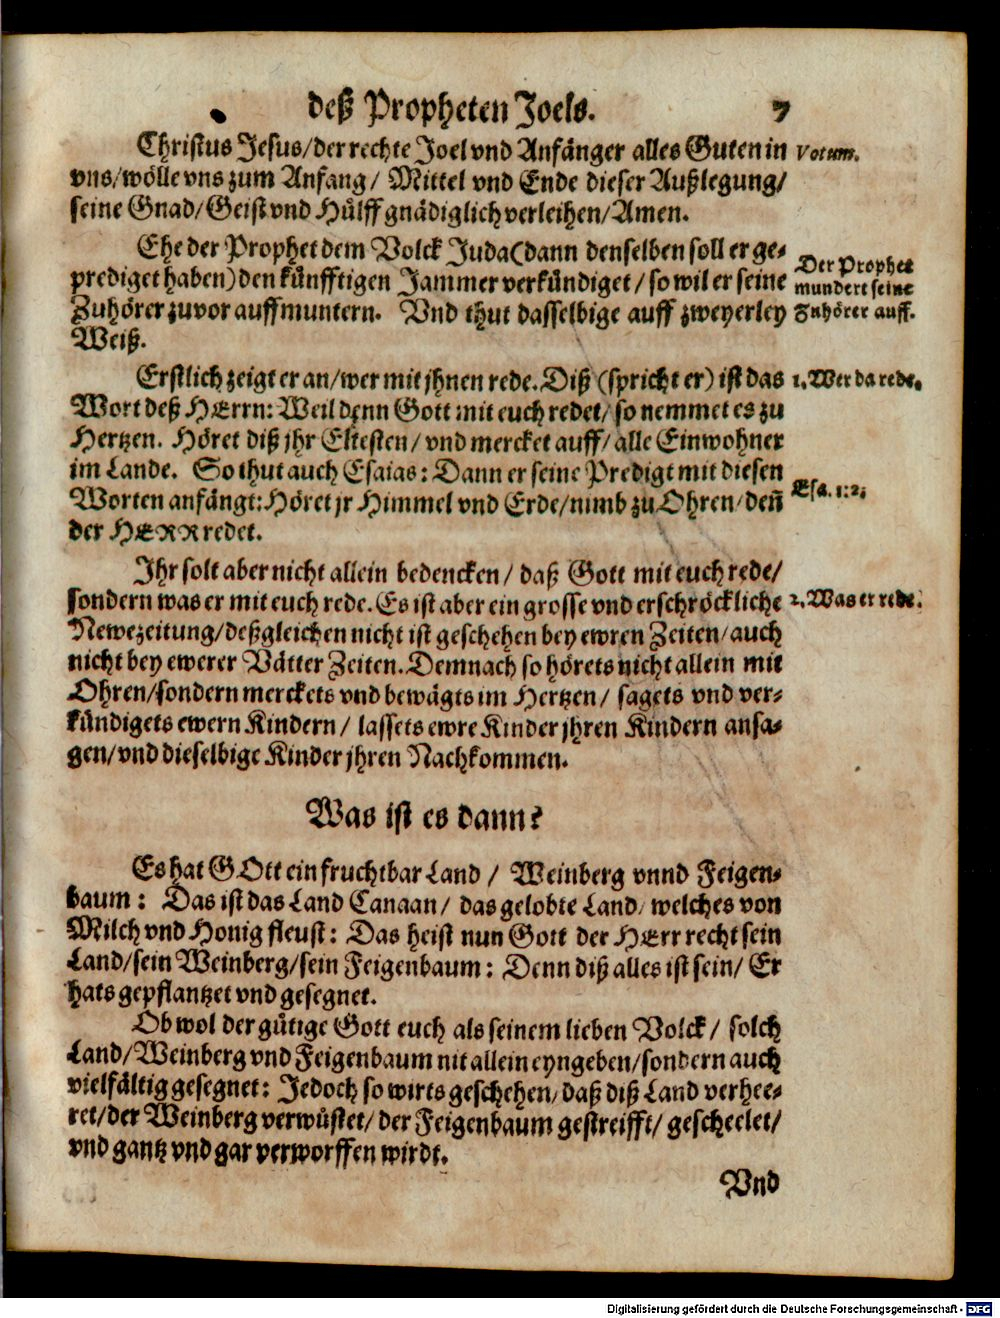 deß Propheten Joels. 7
Christus Jesus/der rechte Joel vnd Anfänger alles Guten in
Votum.
vns/wölle vns zum Anfang/ Mittel vnd Ende dieser Außlegung/
seine Gnad/Geist vnd Hülff gnädiglich verleihen/Amen.
Ehe der Prophet dem Volck Juda(dann denselben soll er ge-
prediget haben)den künfftigen Jammer verkündiget/so wil er seine
Zuhörer zuvor auffmuntern. Vnd thut dasselbige auff zweyerley
Weiß.
Der Prophet
mundert seine
Zuhörer auff.
Erstlich zeigt er an/wer mit jhnen rede. Diß (spricht er) ist das
1. Wer da rede.
Wort deß HErrn: Weil denn Gott mit euch redet/ so nemmet es zu
Hertzen. Höret diß jhr Eltesten/ vnd mercket auff/ alle Einwohner
im Lande. So thut auch Esaias: Dann er seine Predigt mit diesen
Worten anfängt: Höret jr Himmel vnd Erde/nimb zu Ohren/deñ
Esa. 1:2;
der HERR redet.
Ihr solt aber nicht allein bedencken/ daß Gott mit euch rede/
sondern was er mit euch rede. Es ist aber ein grosse vnd erschröckliche
2. Was er rede.
Newezeitung/deßgleichen nicht ist geschehen bey ewren Zeiten/auch
nicht bey ewerer Vätter Zeiten. Demnach so hörets nicht allein mit
Ohren/sondern merckets vnd bewägts im Hertzen/ sagets vnd ver-
kündigets ewern Kindern/ lassets ewre Kinder jhren Kindern ansa-
gen/vnd dieselbige Kinder jhren Nachkommen.
Was ist es dann?
Es hat GOtt ein fruchtbar Land/ Weinberg vnnd Feigen-
baum: Das ist das Land Canaan/ das gelobte Land/ welches von
Milch vnd Honig fleust: Das heist nun Gott der HErr recht sein
Land/sein Weinberg/sein Feigenbaum: Denn diß alles ist sein/ Er
hats gepflantzet vnd gesegnet.
Ob wol der gütige Gott euch als seinem lieben Volck/ solch
Land/Weinberg vnd Feigenbaum nit allein eyngeben/sondern auch
vielfältig gesegnet: Jedoch so wirts geschehen/daß diß Land verhee-
ret/der Weinberg verwüstet/ der Feigenbaum gestreifft/ gescheelet/
vnd gantz vnd gar verworffen wirdt.
Vnd
Digitalisierung gefördert durch die Deutsche Forschungsgemeinschaft - DFG